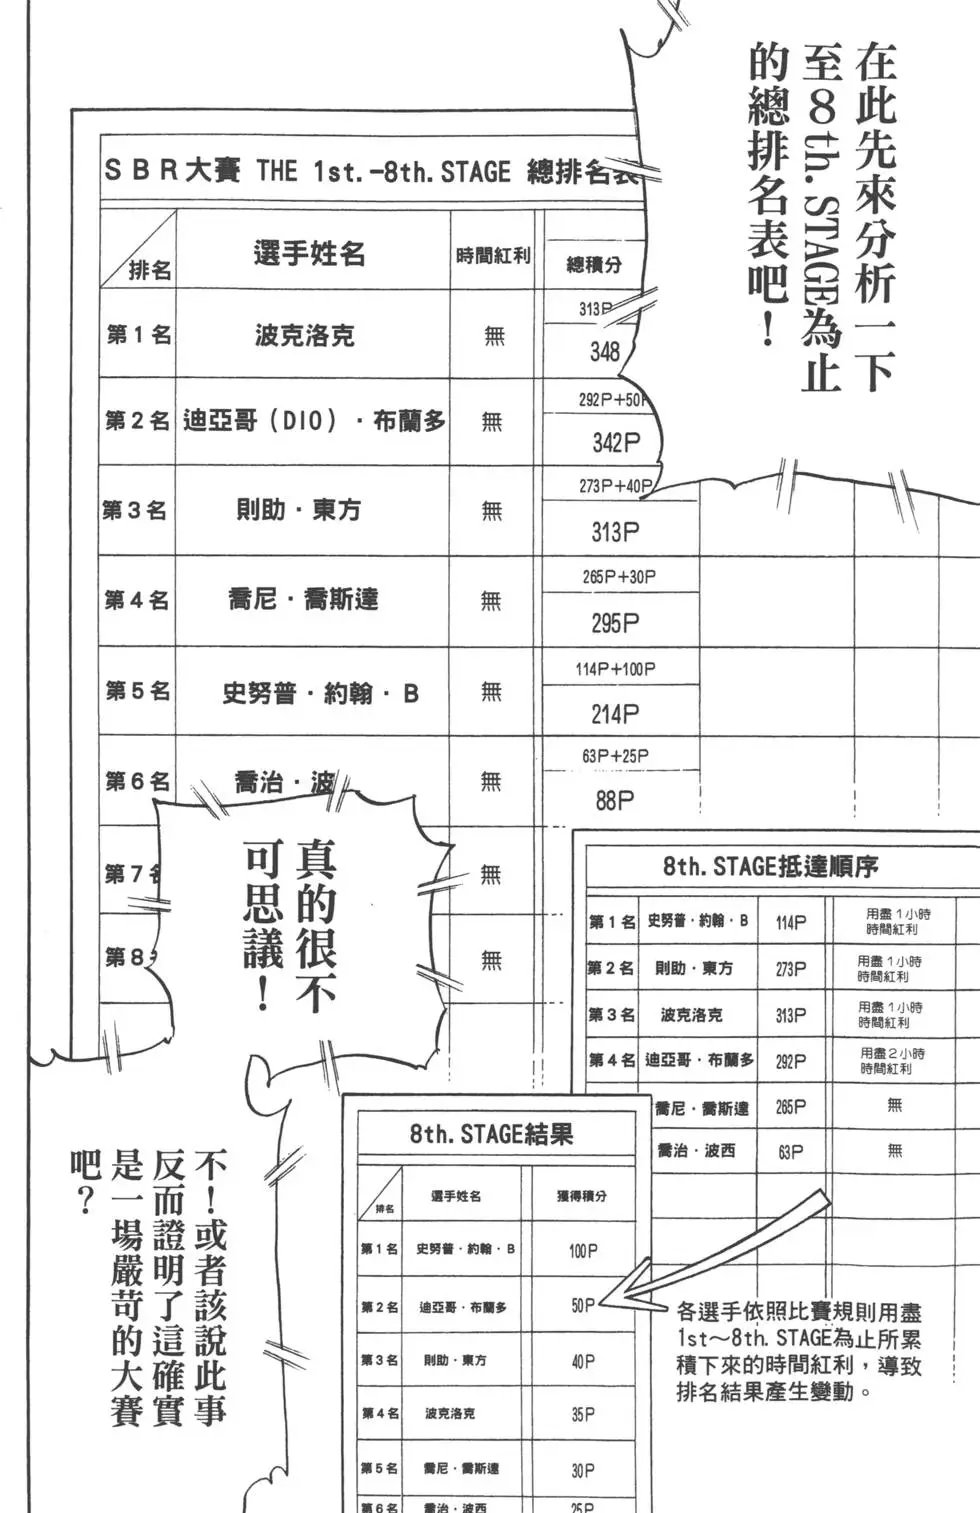 在此先來分析一下
至8th.STAGE為止
的總排名表吧！
SBR大賽 THE 1st.-8th.STAGE 總排名表
排名 選手姓名 時間紅利 總積分
第1名 波克洛克 無 313P 348
第2名 迪亞哥（DIO）・布蘭多 無 292P+50P 342P
第3名 則助・東方 無 273P+40P 313P
第4名 喬尼・喬斯達 無 265P+30P 295P
第5名 史努普・約翰・B 無 114P+100P 214P
第6名 喬治・波 無 63P+25P 88P
第7名 無
第8 無
真的很不
可思議！
8th.STAGE抵達順序
第1名 史努普・約翰・B 114P 用盡1小時
時間紅利
第2名 則助・東方 273P 用盡1小時
時間紅利
第3名 波克洛克 313P 用盡1小時
時間紅利
第4名 迪亞哥・布蘭多 292P 用盡2小時
時間紅利
喬尼・喬斯達 265P 無
喬治・波西 63P 無
8th.STAGE結果
排名 選手姓名 獲得積分
第1名 史努普・約翰・B 100P
第2名 迪亞哥・布蘭多 50P
第3名 則助・東方 40P
第4名 波克洛克 35P
第5名 喬尼・喬斯達 30P
第6名 喬治・波西 25P
各選手依照比賽規則用盡
1st～8th. STAGE為止所累
積下來的時間紅利，導致
排名結果產生變動。
不！或者該說此事
反而證明了這確實
是一場嚴苛的大賽
吧？